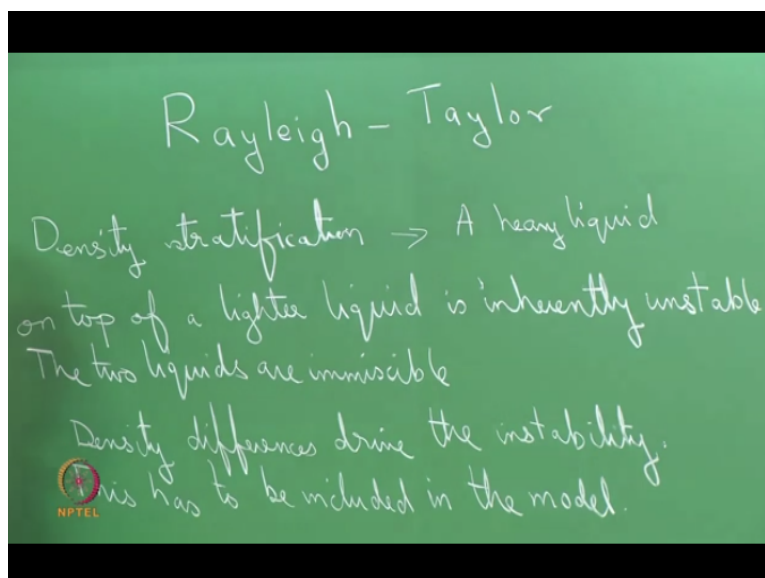 Rayleigh - Taylor
Density stratification → A heavy liquid
on top of a lighter liquid is inherently unstable
The two liquids are immiscible
Density differences drive the instability.
This has to be included in the model.
NPTEL